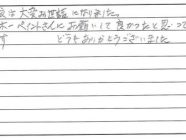 は大変お世話になりました。
ホーペイントさんにお願いして良かったと思って
す
どうもありがとうございました